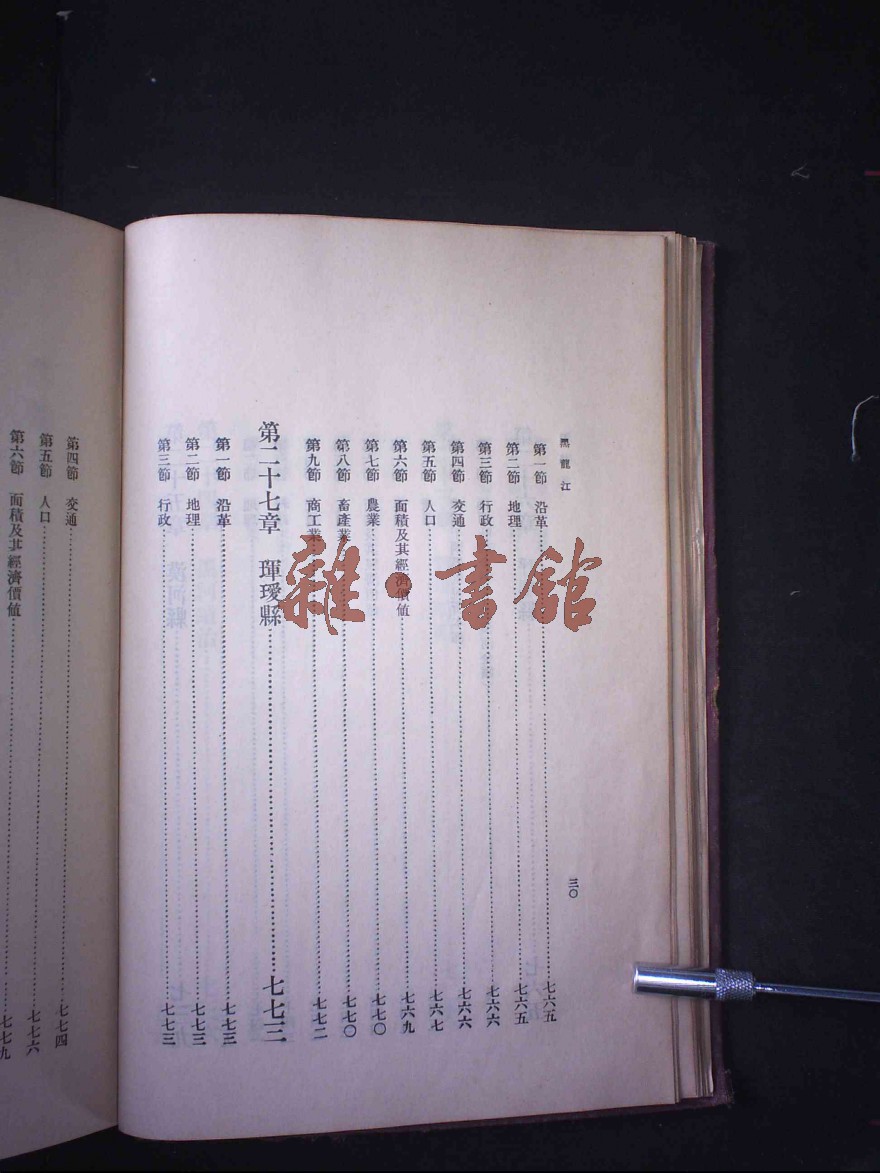 黑龍江
三〇
第一節 沿革 七六五
第二節 地理 七六五
第三節 行政 七六六
第四節 交通 七六六
第五節 人口 七六七
第六節 面積及其經濟價值 七六九
第七節 農業 七七〇
第八節 畜產業 七七〇
第九節 商工業 七七二
第二十七章 琿璦縣 七七三
第一節 沿革 七七三
第二節 地理 七七三
第三節 行政 七七三
第四節 交通 七七四
第五節 人口 七七六
第六節 面積及其經濟價値 七七九
雜·書館